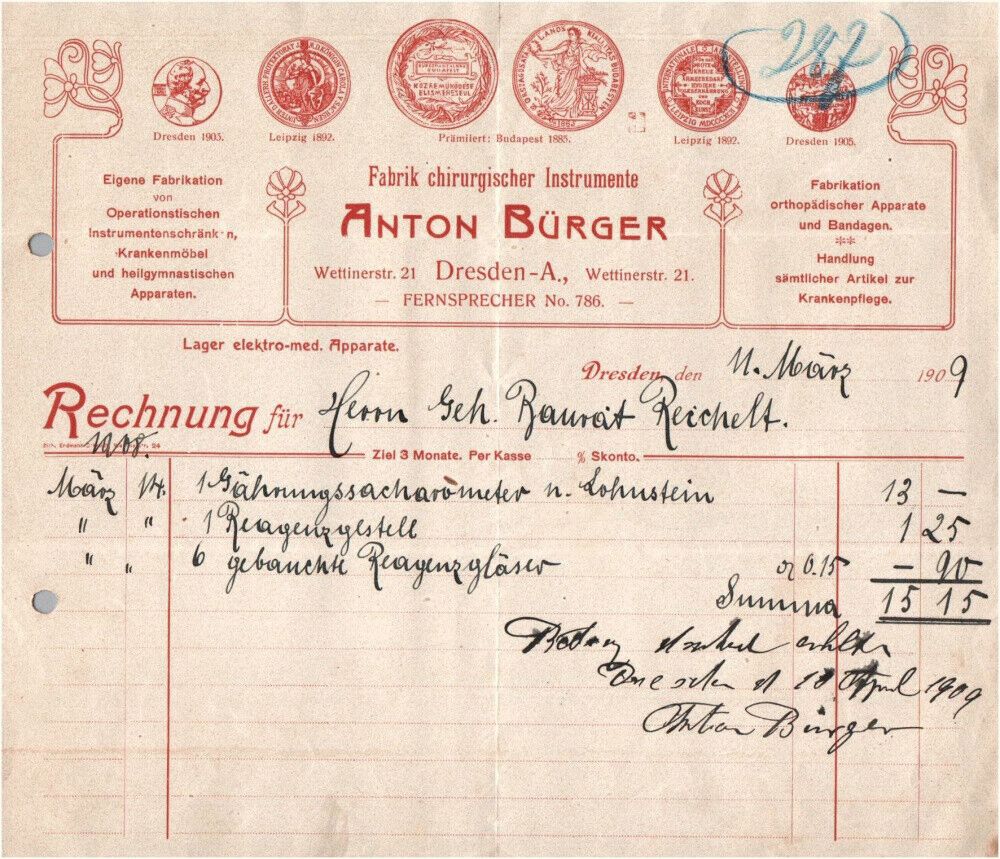 282
Dresden 1905.
Leipzig 1892.
Prämiiert: Budapest 1885.
Leipzig 1892.
Dresden 1905.
Eigene Fabrikation
von
Operationstischen
Instrumentenschränken,
Krankenmöbel
und heilgymnastischen
Apparaten.
Fabrik chirurgischer Instrumente
ANTON BÜRGER
Wettinerstr. 21 Dresden-A., Wettinerstr. 21.
— FERNSPRECHER No. 786. —
Fabrikation
orthopädischer Apparate
und Bandagen.
**
Handlung
sämtlicher Artikel zur
Krankenpflege.
Lager elektro-med. Apparate.
Dresden, den 11. März 1909
Rechnung für Herrn Geh. Baurat Reichelt.
1908.
Ziel 3 Monate. Per Kasse % Skonto.
März 14. 1 Gährungssacharometer n. Lohnstein 13 —
" " 1 Reagenzgestell 1 25
" " 6 gebauchte Reagenzgläser a 0.15 — 90
Summa 15 15
Betrag dankend erhalten
Dresden d 10 April 1909
Anton Bürger